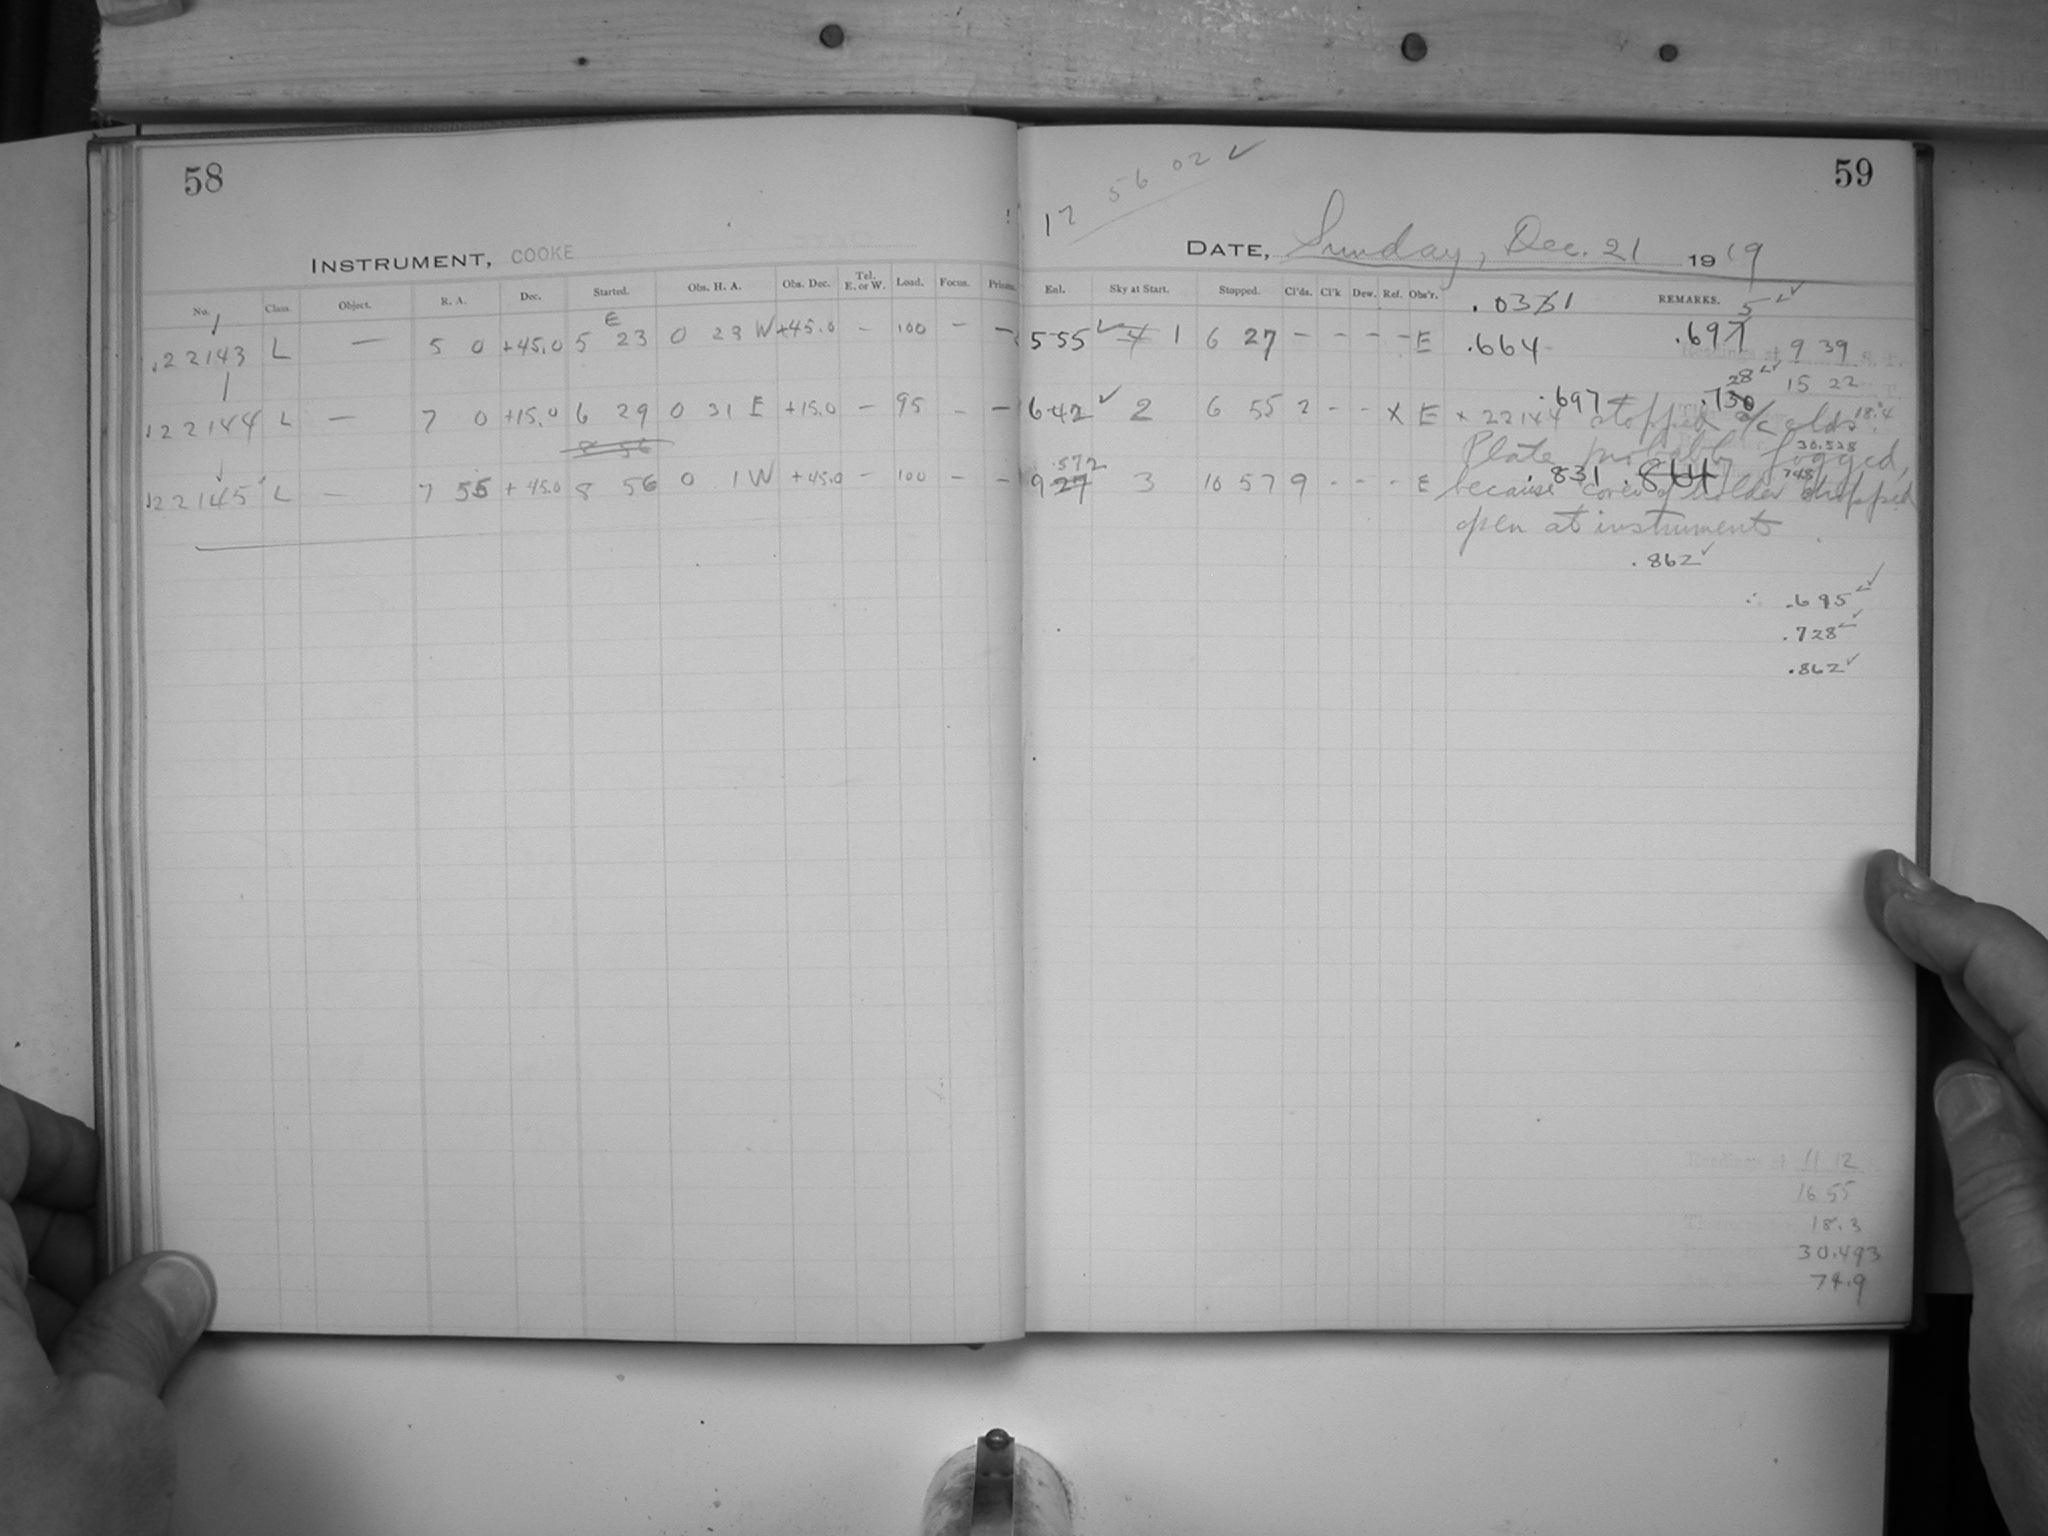 58
INSTRUMENT, COOKE
No. Class. Object. R. A. Dec. Started. Obs. H. A. Obs. Dec. Tel. E. or W. Load. Focus.
22143 L — 5 0 +45.0 5 23 0 23 W +45.0 — 100 — —
22144 L — 7 0 +15.0 6 29 0 31 E +15.0 — 95 — —
8 56
22145 L — 7 55 + 45.0 8 56 0 1 W +45.0 — 100 — —
59
17 56 02 ✓
DATE, Sunday, Dec. 21 1919
Enl. Sky at Start. Stopped. Cl'ds. Cl'k Dew. Ref. Obs'r. REMARKS.
5 55 ✓ 4 1 6 27 — — — — E .664 .697 9 39
15 22
6 42 ✓ 2 6 55 2 - - X E x 22144 stopped a/c clds. 18.4
.697 .730 28
Plate probably fogged, 30.528
9 27 .572 3 10 57 9 - - - E because cover of holder dropped
.831
open at instrument
.862 ✓
∴ .695 ✓✓
.728 ✓✓
.862 ✓
Readings at 11 12
16 55
18.3
30.493
74.9